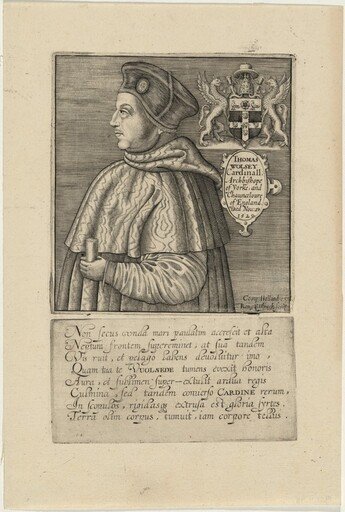 THOMAS
WOLSEY
Cardinall
Archbishope
of Yorke, and
Chauncelour
of England
1529
Non secus unda mari paulatim accrescit et alta
frontem supereminet, at sua tandem
Vis ruit, et pelago labens devoluitur imo,
Quam tua te tumens evexit honoris
Aura, et sublimen super-extulit ardua regis
Culmina, sed tandem converso CARDINE rerum,
In scopulos, rigidasq extrusa est gloria syrtes.
Terra olim corpus, tumuit, iam corpore tellus.